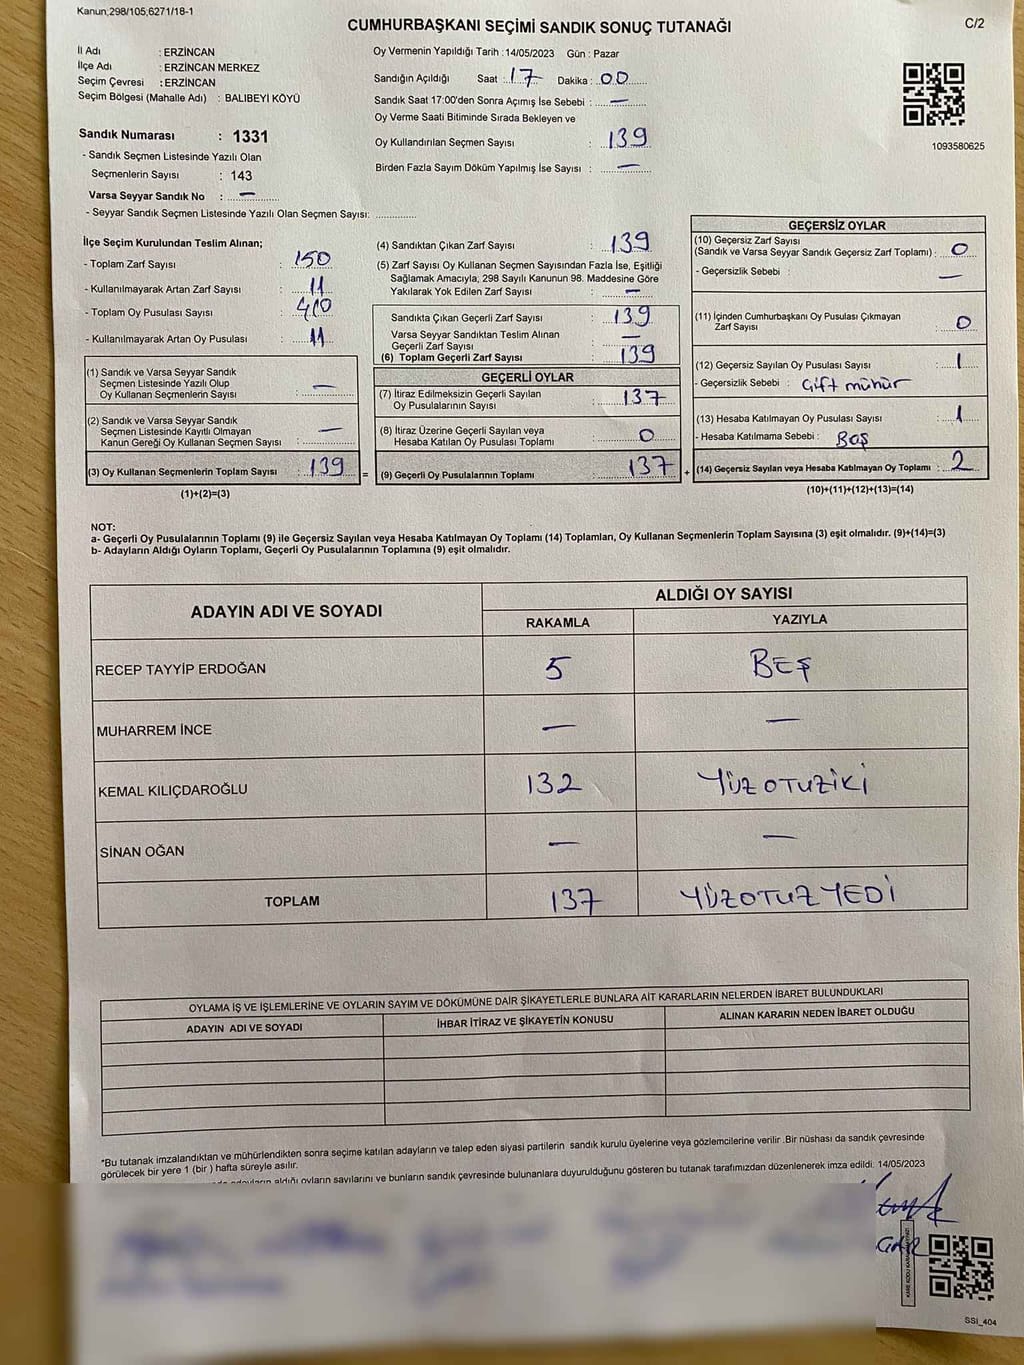 Kanun;298/105,6271/18-1
CUMHURBAŞKANI SEÇİMİ SANDIK SONUÇ TUTANAĞI
C/2
İl Adı : ERZİNCAN
İlçe Adı : ERZİNCAN MERKEZ
Seçim Çevresi : ERZİNCAN
Seçim Bölgesi (Mahalle Adı) : BALIBEYİ KÖYÜ
Sandık Numarası : 1331
- Sandık Seçmen Listesinde Yazılı Olan
Seçmenlerin Sayısı : 143
Varsa Seyyar Sandık No : —
- Seyyar Sandık Seçmen Listesinde Yazılı Olan Seçmen Sayısı: ............
Oy Vermenin Yapıldığı Tarih : 14/05/2023 Gün : Pazar
Sandığın Açıldığı Saat : 17 Dakika : 00
Sandık Saat 17:00'den Sonra Açımış İse Sebebi : —
Oy Verme Saati Bitiminde Sırada Bekleyen ve
Oy Kullandırılan Seçmen Sayısı : 139
Birden Fazla Sayım Döküm Yapılmış İse Sayısı : —
1093580625
İlçe Seçim Kurulundan Teslim Alınan;
- Toplam Zarf Sayısı : 150
- Kullanılmayarak Artan Zarf Sayısı : 11
- Toplam Oy Pusulası Sayısı :
- Kullanılmayarak Artan Oy Pusulası : 11
(1) Sandık ve Varsa Seyyar Sandık
Seçmen Listesinde Yazılı Olup
Oy Kullanan Seçmenlerin Sayısı : —
(2) Sandık ve Varsa Seyyar Sandık
Seçmen Listesinde Kayıtlı Olmayan
Kanun Gereği Oy Kullanan Seçmen Sayısı : —
(3) Oy Kullanan Seçmenlerin Toplam Sayısı : 139 =
(1)+(2)=(3)
(4) Sandıktan Çıkan Zarf Sayısı : 139
(5) Zarf Sayısı Oy Kullanan Seçmen Sayısından Fazla İse, Eşitliği
Sağlamak Amacıyla, 298 Sayılı Kanunun 98. Maddesine Göre
Yakılarak Yok Edilen Zarf Sayısı : —
Sandıkta Çıkan Geçerli Zarf Sayısı : 139
Varsa Seyyar Sandıktan Teslim Alınan
Geçerli Zarf Sayısı : —
(6) Toplam Geçerli Zarf Sayısı : 139
GEÇERLİ OYLAR
(7) İtiraz Edilmeksizin Geçerli Sayılan
Oy Pusulalarının Sayısı : 137
(8) İtiraz Üzerine Geçerli Sayılan veya
Hesaba Katılan Oy Pusulası Toplamı : 0
(9) Geçerli Oy Pusulalarının Toplamı : 137 +
GEÇERSİZ OYLAR
(10) Geçersiz Zarf Sayısı
(Sandık ve Varsa Seyyar Sandık Geçersiz Zarf Toplamı) : 0
- Geçersizlik Sebebi : —
(11) İçinden Cumhurbaşkanı Oy Pusulası Çıkmayan
Zarf Sayısı : 0
(12) Geçersiz Sayılan Oy Pusulası Sayısı : 1
- Geçersizlik Sebebi : Çift mühür
(13) Hesaba Katılmayan Oy Pusulası Sayısı : 1
- Hesaba Katılmama Sebebi : Boş
(14) Geçersiz Sayılan veya Hesaba Katılmayan Oy Toplamı : 2
(10)+(11)+(12)+(13)=(14)
NOT:
a- Geçerli Oy Pusulalarının Toplamı (9) ile Geçersiz Sayılan veya Hesaba Katılmayan Oy Toplamı (14) Toplamları, Oy Kullanan Seçmenlerin Toplam Sayısına (3) eşit olmalıdır. (9)+(14)=(3)
b- Adayların Aldığı Oyların Toplamı, Geçerli Oy Pusulalarının Toplamına (9) eşit olmalıdır.
ADAYIN ADI VE SOYADI
ALDIĞI OY SAYISI
RAKAMLA YAZIYLA
RECEP TAYYİP ERDOĞAN 5 BEŞ
MUHARREM İNCE — —
KEMAL KILIÇDAROĞLU 132 YÜZOTUZİKİ
SİNAN OĞAN — —
TOPLAM 137 YÜZOTUZYEDİ
OYLAMA İŞ VE İŞLEMLERİNE VE OYLARIN SAYIM VE DÖKÜMÜNE DAİR ŞİKAYETLERLE BUNLARA AİT KARARLARIN NELERDEN İBARET BULUNDUKLARI
ADAYIN ADI VE SOYADI İHBAR İTİRAZ VE ŞİKAYETİN KONUSU ALINAN KARARIN NEDEN İBARET OLDUĞU
*Bu tutanak imzalandıktan ve mühürlendikten sonra seçime katılan adayların ve talep eden siyasi partilerin sandık kurulu üyelerine veya gözlemcilerine verilir .Bir nüshası da sandık çevresinde
görülecek bir yere 1 (bir ) hafta süreyle asılır.
aldığı oyların sayılarını ve bunların sandık çevresinde bulunanlara duyurulduğunu gösteren bu tutanak tarafımızdan düzenlenerek imza edildi. 14/05/2023
SSİ_404